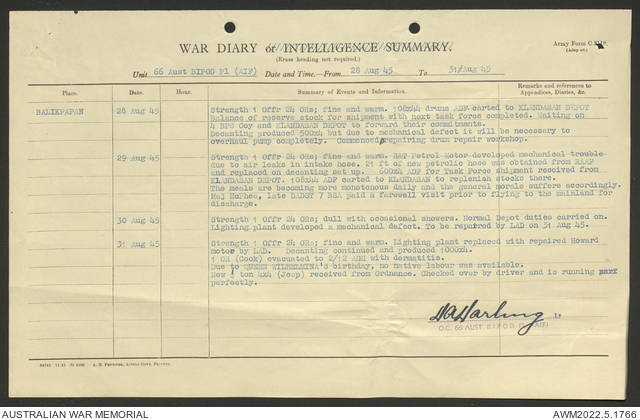 WAR DIARY or INTELLIGENCE SUMMARY.
(Erase heading not required.)
Army Form C.
Unit 66 Aust BIPOD Pl (AIF) Date and Time.—From 28 Aug 45 To 31 Aug 45
Place. Date. Hour. Summary of Events and Information. Remarks and references to
Appendices, Diaries, &c.
BALIKPAPAN 28 Aug 45 Strength 1 Offr 24 ORs; fine and warm. 108x44 drums ADF carted to KLANDASAN DEPOT
Balance of reserve stock for shipment with next task force completed. Waiting on
4 BPS Coy and KLANDASAN DEPOT to forward their commitments.
Decanting produced 500x4 but due to mechanical defect it will be necessary to
overhaul pump completely. Commenced repairing drum repair workshop.
29 Aug 45 Strength 1 Offr 24 ORs; fine and warm. Petrol Motor developed mechanical trouble
due to air leaks in intake hose. 21 ft of new petrolic hose was obtained from RAAF
and replaced on decanting set up. 600x44 ADF for Task Force shipment received from
KLANDASAN DEPOT. 108x44 ADF carted to KLANDASAN to replenish stocks there.
The meals are becoming more monotonous daily and the general morale suffers accordingly.
Maj McPhee, late DADST 7 BSA paid a farewell visit prior to flying to the mainland for
discharge.
30 Aug 45 Strength 1 Offr 24 ORs; dull with occasional showers. Normal Depot duties carried on.
Lighting plant developed a mechanical defect. To be repaired by LAD on 31 Aug 45.
31 Aug 45 Strength 1 Offr 24 ORs; fine and warm. Lighting plant replaced with repaired Howard
motor by LAD. Decanting continued and produced 1000x4.
1 OR (Cook) evacuated to 2/12 AGH with dermatitis.
Due to QUEEN WILHELMINA's birthday, no native labour was available.
New ¼ ton 4x4 (Jeep) received from Ordnance. Checked over by driver and is running
perfectly.
HA Harling Lt
O.C. 66 AUST. B.I.P.O.D. PL (AIF)
AUSTRALIAN WAR MEMORIAL
AWM2022.5.1766